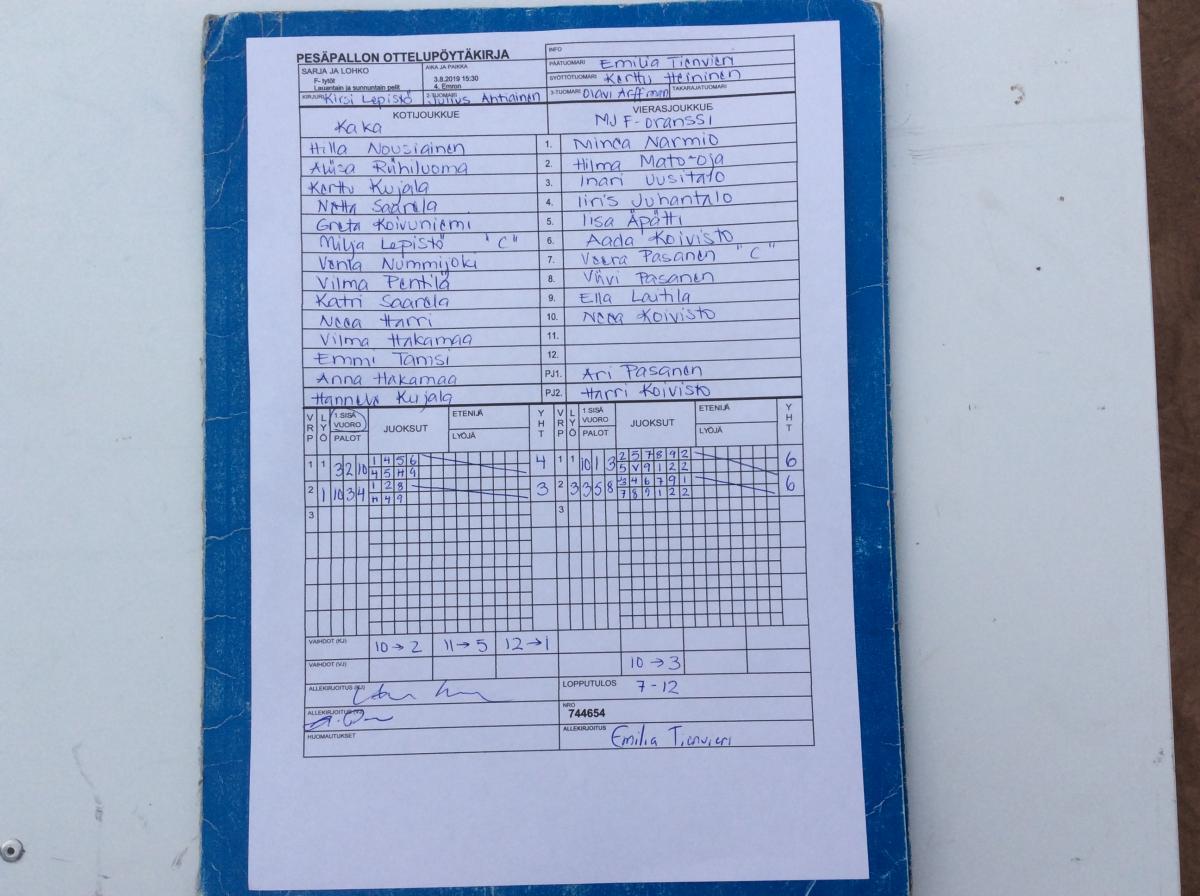 PESÄPALLON OTTELUPÖYTÄKIRJA
INFO
SARJA JA LOHKO
F- tytöt
Lauantain ja sunnuntain pelit
AIKA JA PAIKKA
3.8.2019 15:30
4. Emron
PÄÄTUOMARI Emilia Tienvieri
SYÖTTÖTUOMARI Kerttu Heininen
KIRJURI Kirsi Lepistö 2-TUOMARI Julius Ahtiainen 3-TUOMARI Olavi Arffman TAKARAJATUOMARI
KOTIJOUKKUE VIERASJOUKKUE
KaKa MJ F-oranssi
Hilla Nousiainen 1. Minea Narmio
Riihiluoma 2. Hilma Mato-oja
Kerttu Kujala 3. Inari Uusitalo
Netta Saarela 4. Iiris Juhantalo
Greta Koivuniemi 5. Iisa Äpätti
Milja Lepistö "C" 6. Aada Koivisto
Venla Nummijoki 7. Veera Pasanen "C"
Vilma Penttilä 8. Viivi Pasanen
Katri Saarela 9. Ella Lautila
Neea Harri 10. Neea Koivisto
Vilma Hakamaa 11.
Emmi Tanisi 12.
Anna Hakamaa PJ1. Ari Pasanen
Hannele Kujala PJ2. Harri Koivisto
VRP LYÖ 1 SISÄ VUORO PALOT JUOKSUT ETENIJÄ LYÖJÄ YHT VRP LYÖ 1 SISÄ VUORO PALOT JUOKSUT ETENIJÄ LYÖJÄ YHT
1 1 3 2 10 1 4 5 6 4 1 1 10 1 3 2 5 7 8 9 2 6
4 5 H 9 5 V 9 1 2 2
2 1 10 3 4 1 2 8 3 2 3 3 5 8 3 4 6 7 9 1 6
H 4 9 7 8 9 1 2 2
3 3
VAIHDOT (KJ) 10→2 11→5 12→1
VAIHDOT (VJ) 10→3
ALLEKIRJOITUS (KJ) LOPPUTULOS 7-12
ALLEKIRJOITUS (VJ) NRO
744654
HUOMAUTUKSET ALLEKIRJOITUS Emilia Tienvieri